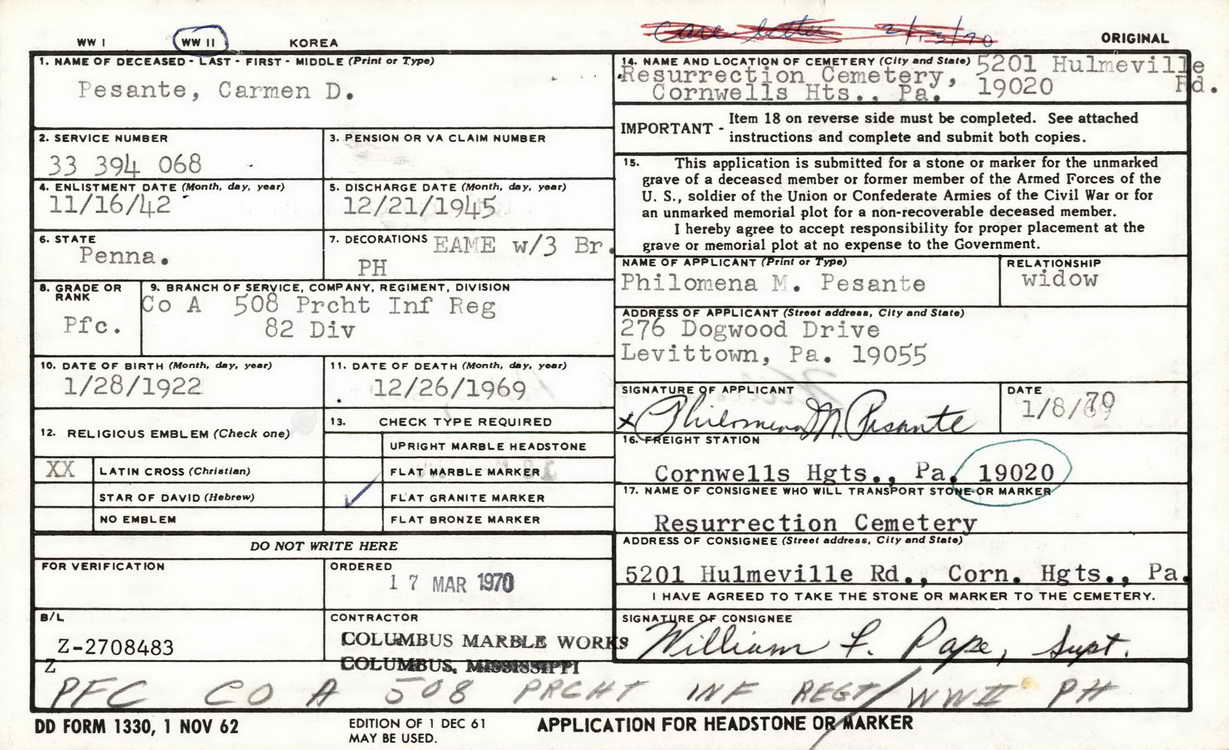 WW I WW II KOREA Care letter 2/13/70 ORIGINAL
1. NAME OF DECEASED - LAST - FIRST - MIDDLE (Print or Type)
Pesante, Carmen D.
2. SERVICE NUMBER
33 394 068
3. PENSION OR VA CLAIM NUMBER
4. ENLISTMENT DATE (Month, day, year)
11/16/42
5. DISCHARGE DATE (Month, day, year)
12/21/1945
6. STATE
Penna.
7. DECORATIONS EAME w/3 Br.
PH
8. GRADE OR
RANK
Pfc.
9. BRANCH OF SERVICE, COMPANY, REGIMENT, DIVISION
Co A 508 Prcht Inf Reg
82 Div
10. DATE OF BIRTH (Month, day, year)
1/28/1922
11. DATE OF DEATH (Month, day, year)
12/26/1969
12. RELIGIOUS EMBLEM (Check one)
XX LATIN CROSS (Christian)
STAR OF DAVID (Hebrew)
NO EMBLEM
13. CHECK TYPE REQUIRED
UPRIGHT MARBLE HEADSTONE
FLAT MARBLE MARKER
FLAT GRANITE MARKER
FLAT BRONZE MARKER
DO NOT WRITE HERE
FOR VERIFICATION
ORDERED
17 MAR 1970
B/L
Z-2708483
Z
CONTRACTOR
COLUMBUS MARBLE WORKS
COLUMBUS, MISSISSIPPI
14. NAME AND LOCATION OF CEMETERY (City and State) 5201 Hulmeville
Resurrection Cemetery, Rd.
Cornwells Hts., Pa. 19020
IMPORTANT - Item 18 on reverse side must be completed. See attached
instructions and complete and submit both copies.
15. This application is submitted for a stone or marker for the unmarked
grave of a deceased member or former member of the Armed Forces of the
U. S., soldier of the Union or Confederate Armies of the Civil War or for
an unmarked memorial plot for a non-recoverable deceased member.
I hereby agree to accept responsibility for proper placement at the
grave or memorial plot at no expense to the Government.
NAME OF APPLICANT (Print or Type)
Philomena M. Pesante
RELATIONSHIP
widow
ADDRESS OF APPLICANT (Street address, City and State)
276 Dogwood Drive
Levittown, Pa. 19055
SIGNATURE OF APPLICANT
x Philomena M. Pesante
DATE
1/8/70
16. FREIGHT STATION
Cornwells Hgts., Pa. 19020
17. NAME OF CONSIGNEE WHO WILL TRANSPORT STONE OR MARKER
Resurrection Cemetery
ADDRESS OF CONSIGNEE (Street address, City and State)
5201 Hulmeville Rd., Corn. Hgts., Pa.
I HAVE AGREED TO TAKE THE STONE OR MARKER TO THE CEMETERY.
SIGNATURE OF CONSIGNEE
William F. Pape, Supt.
PFC CO A 508 PRCHT INF REGT/WWII PH
DD FORM 1330, 1 NOV 62
EDITION OF 1 DEC 61
MAY BE USED.
APPLICATION FOR HEADSTONE OR MARKER